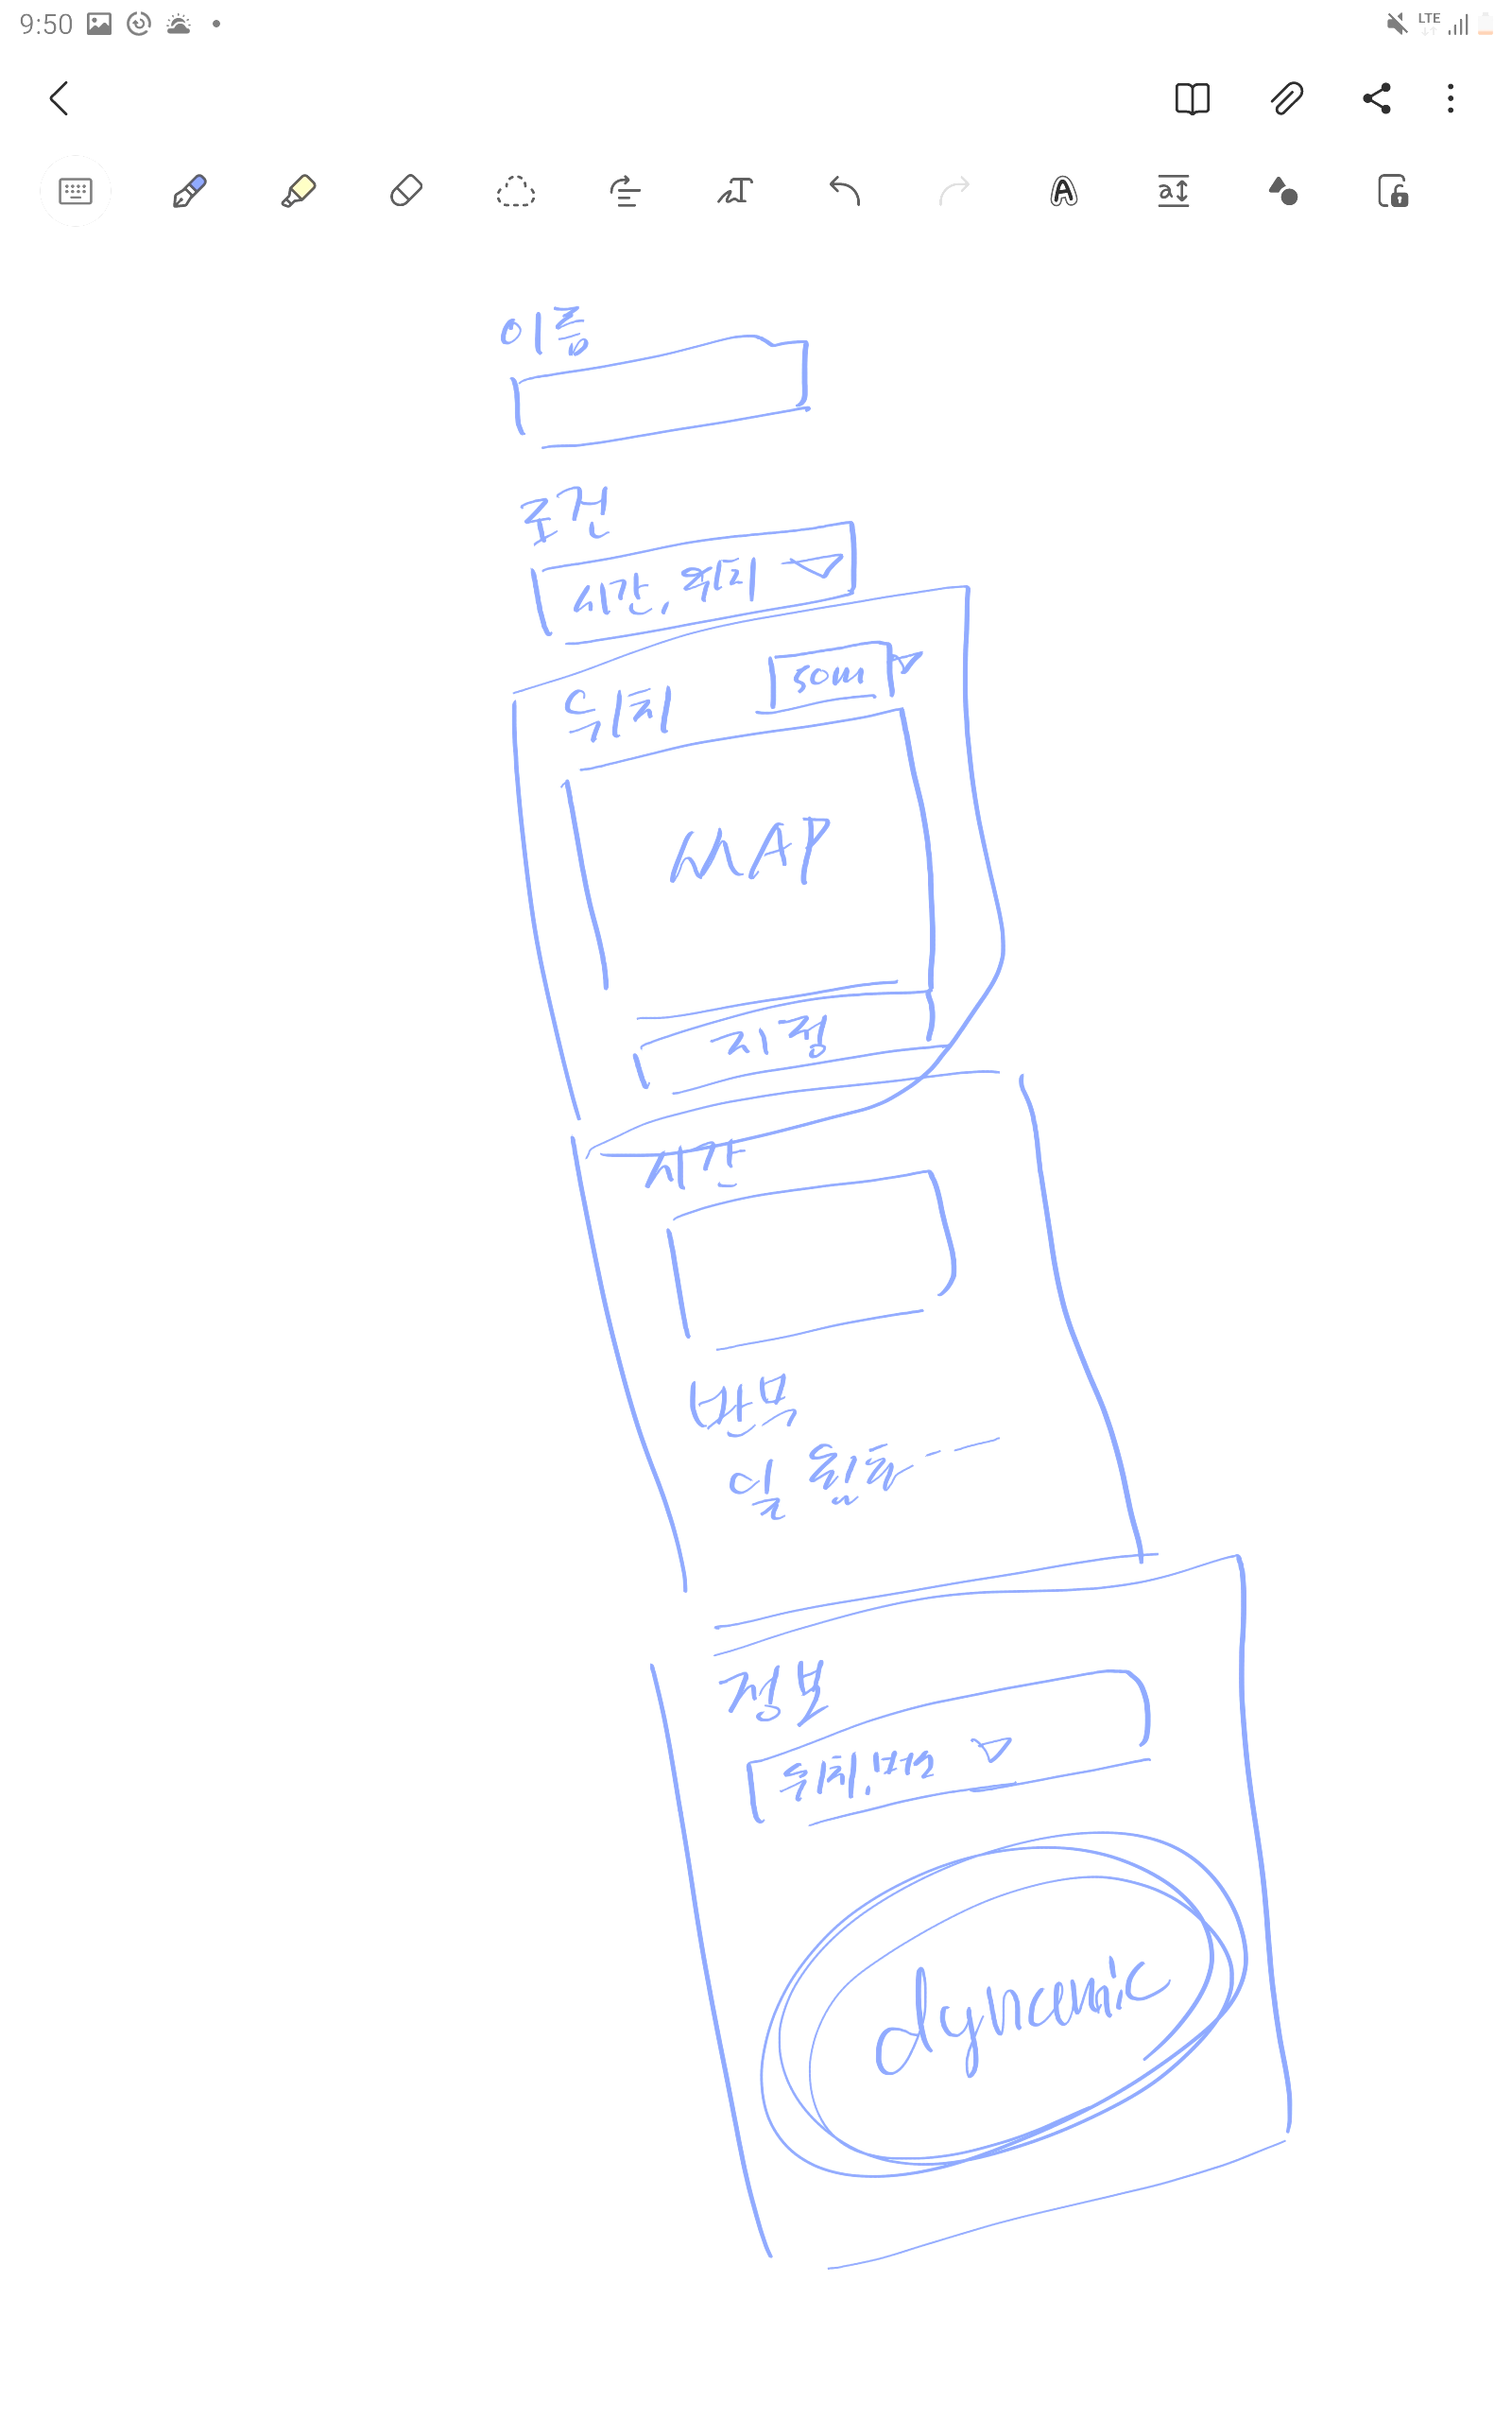 9:50
LTE
이름
조건
시간, 위치
위치
50m
MAP
지정
시간
반복
일 월 화
정보
위치, 버스
dynamic